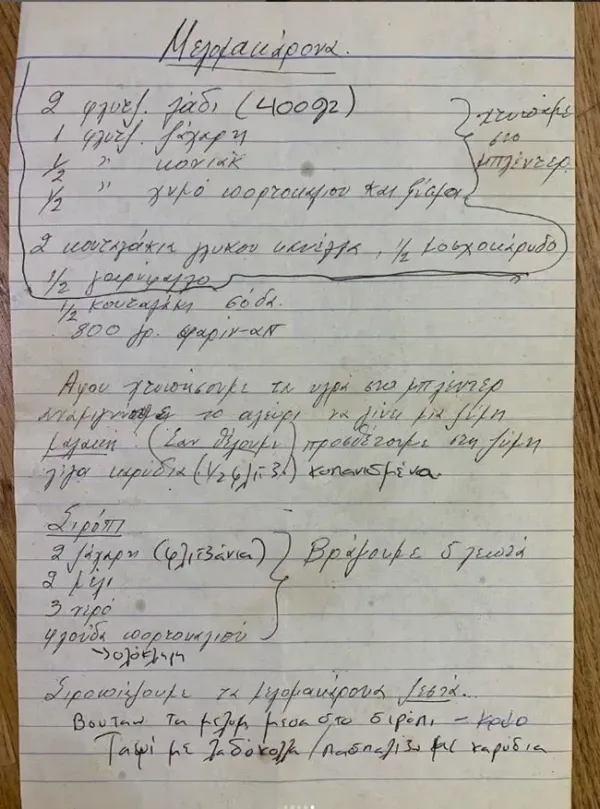 Μελομακάρονα.
2 φλυτζ. λάδι (400gr)
1 φλυτζ. ζάχαρη
1/2 " κονιάκ
1/2 " χυμό πορτοκαλιου και ξίσμα
χτυπάμε
στο
μπλέντερ
2 κουταλάκια γλυκου κανέλλα, 1/2 μοσχοκάρυδο
1/2 γαρίφαλλο
1/2 κουταλάκι σόδα.
800 γρ. φαρίν-απ
Αφου χτυπήσουμε τα υγρά στο μπλέντερ
το αλεύρι να γίνει μια ζύμη
μαλακή. (Εαν θέλουμε) προσθέτουμε στη ζύμη
λίγα καρύδια (1/2 φλιτζ.) κοπανισμένα.
Σιρόπι
2 ζάχαρη (φλιτζάνια)
2 μέλι
3 νερό
φλούδα πορτοκαλιού
→ολόκληρη
Βράζουμε 5 λεπτά
Σιροπιάζουμε τα μελομακάρονα ζεστά...
Βουταω τα μελομ μεσα στο σιρόπι - κρύο
Ταψί με λαδόκολα / πασπαλίζω με καρύδια